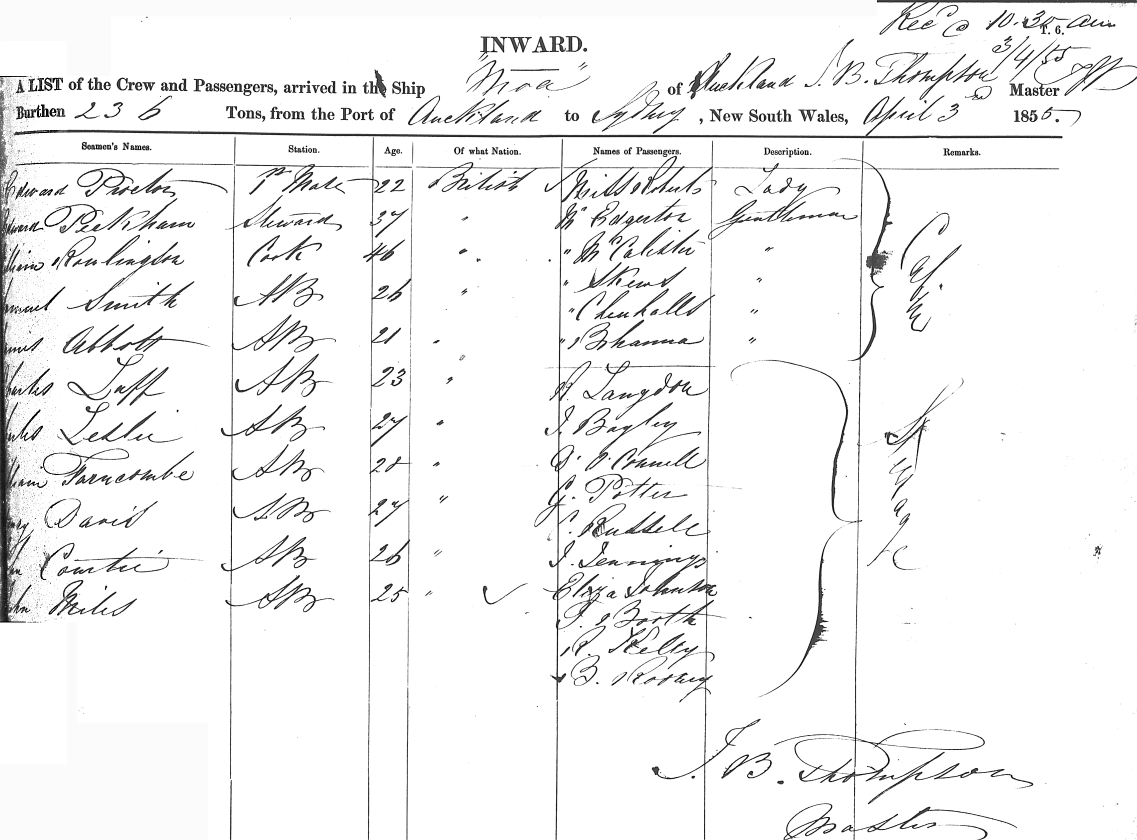 Rec @ 10.35 am
T. 6.
3/4/55
INWARD.
A LIST of the Crew and Passengers, arrived in the Ship "Moa" of Auckland J. B. Thompson Master
Burthen 236 Tons, from the Port of Auckland to Sydney, New South Wales, April 3rd 1855.
Seamen's Names. Station. Age. Of what Nation. Names of Passengers. Description. Remarks.
Edward Procter 1st Mate 22 British Miss Roberts Lady
Peckham Steward 37 " Mr Edgerton Gentleman
Rowlington Cook 46 " " McCalister "
Smith AB 26 " " Skews "
" Chenhalls "
Abbott AB 21 " " Bohanna "
Cabin
Luff AB 23 " R. Langdon
Leslie AB 27 " J. Bagley
Farncombe AB 28 " D. O'Connell
G. Potter
Davis AB 27 " C. Russell
AB 26 " J. Jennings
Miles AB 25 " Eliza Johnston
J. Booth
R. Kelly
B. Rooney
Steerage
J. B. Thompson
Master